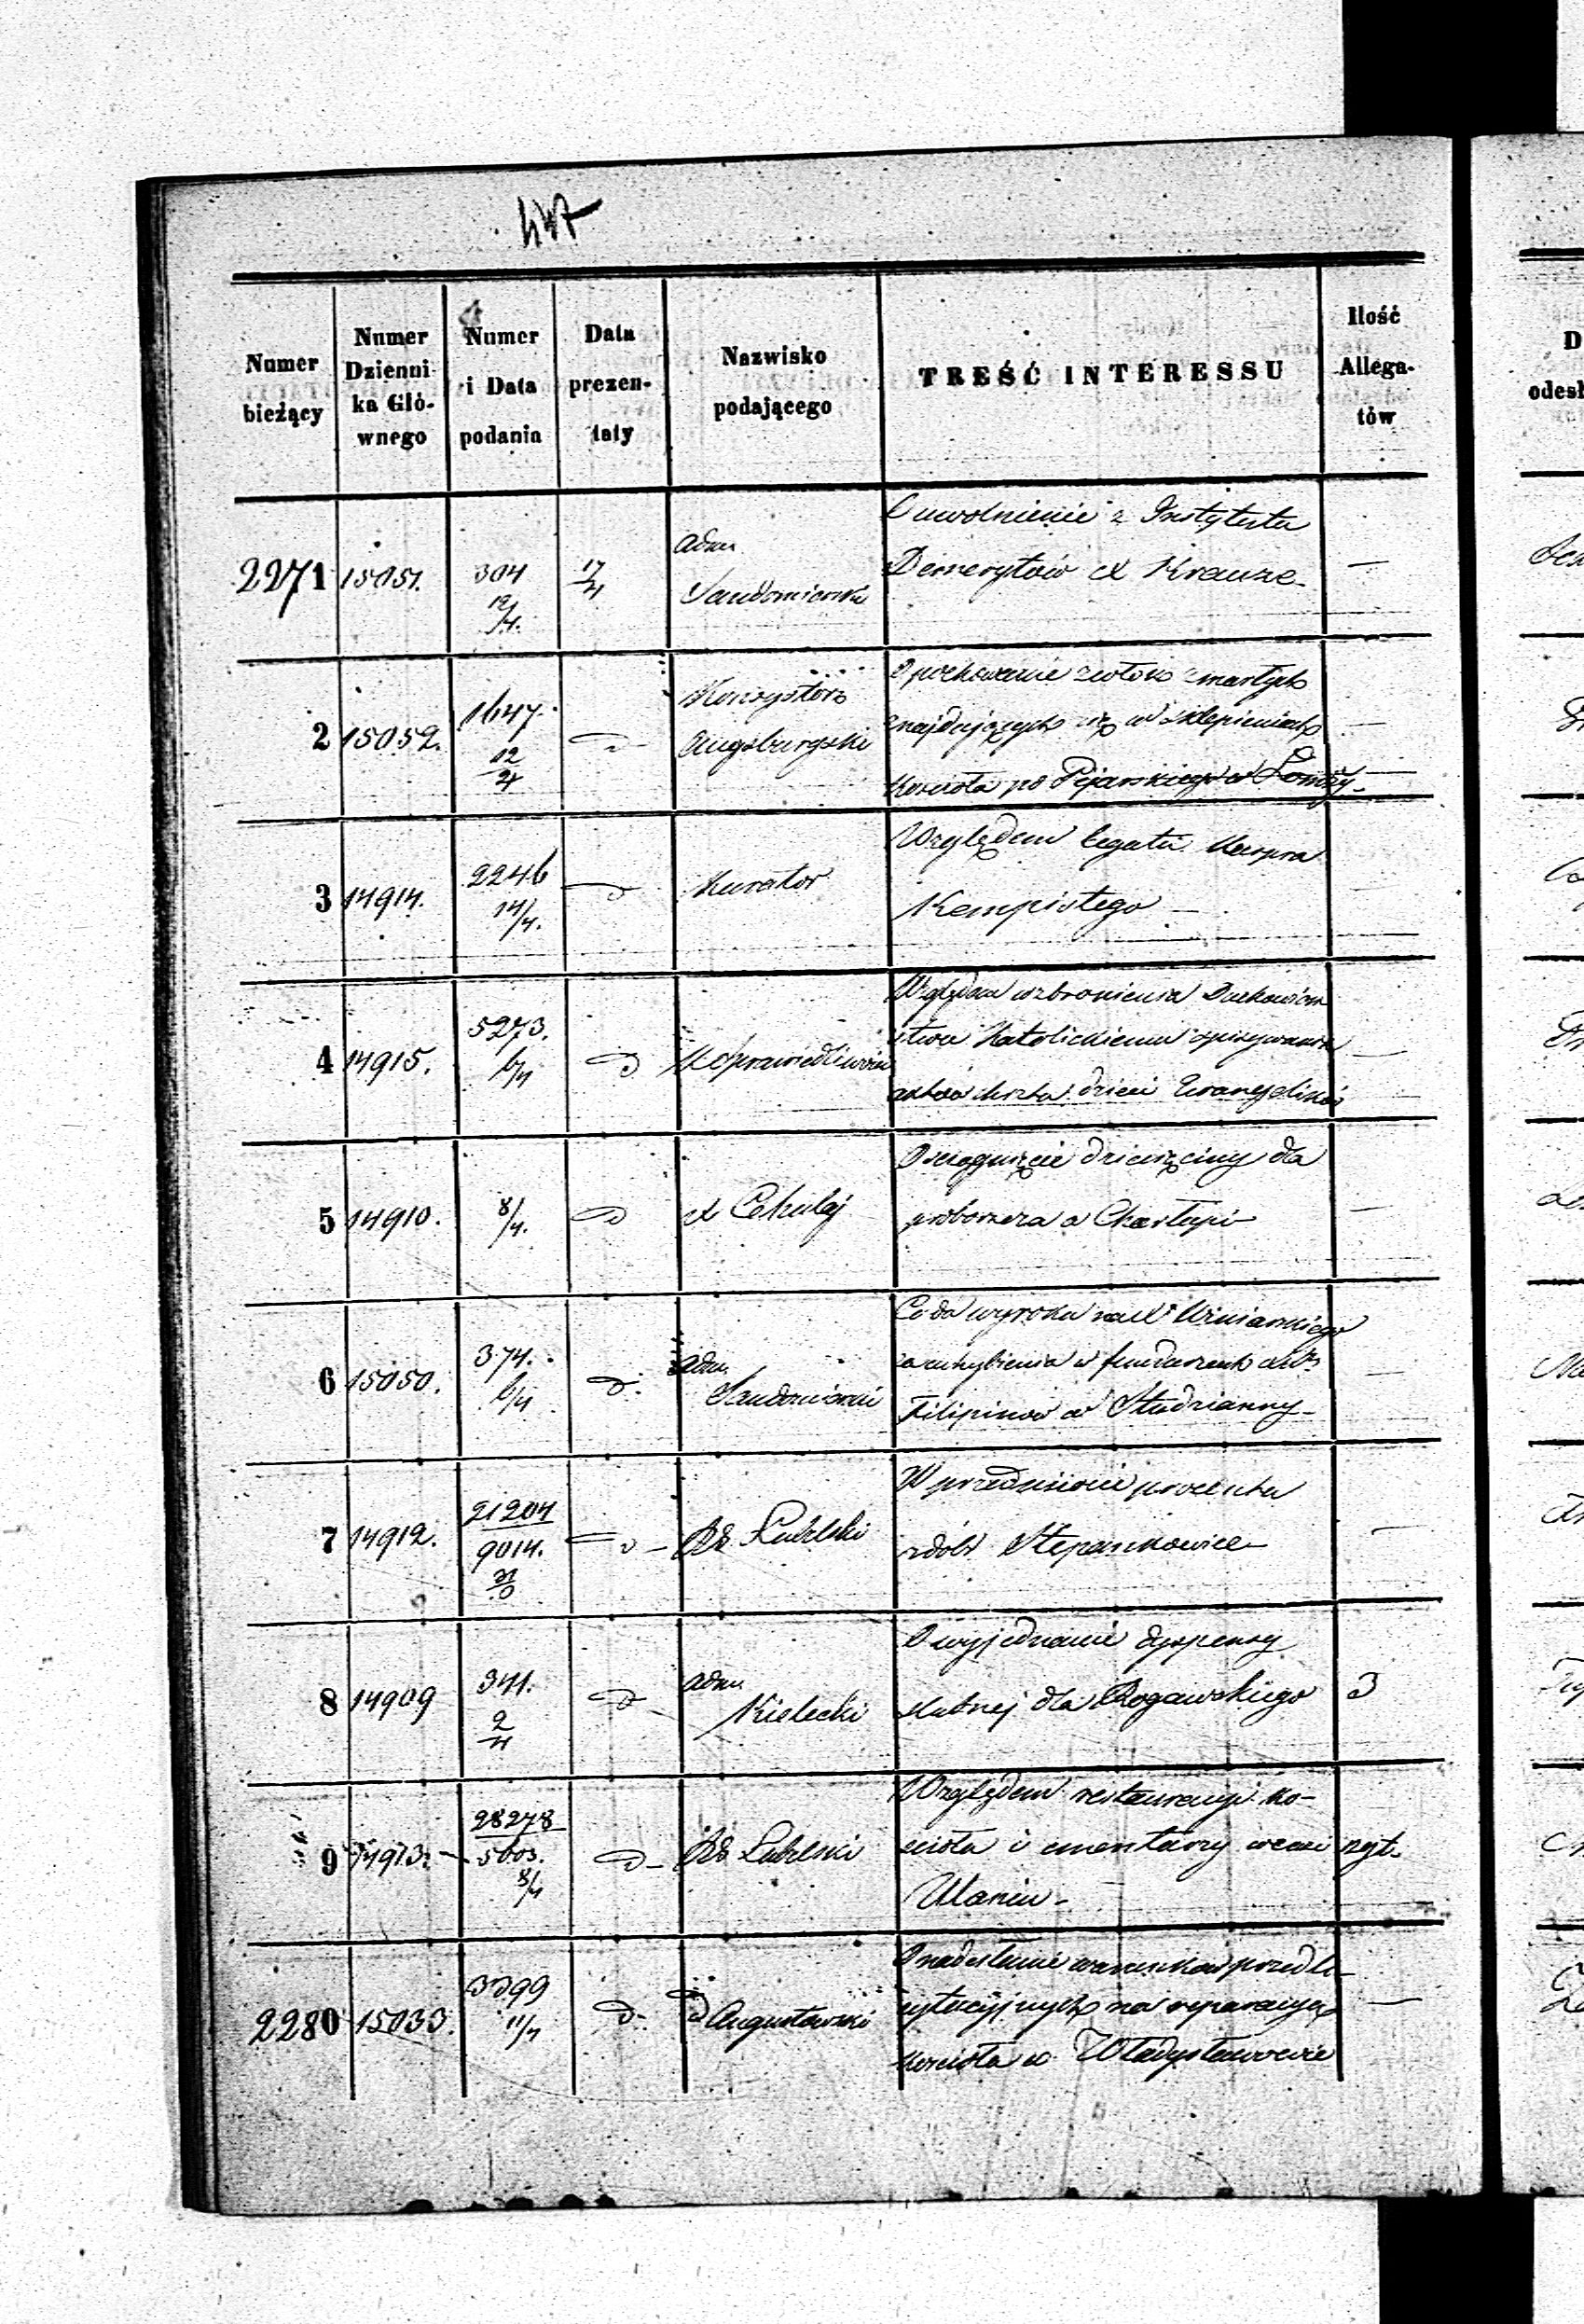 Numer
bieżący
Numer
Dzienni-
ka Głó-
wnego
Numer
i Data
podania
Data
prezen-
taty
Nazwisko
podającego
TREŚĆ INTERESSU
Ilość
Allega-
tów
D
odesł
2271
15051.
304
12/4.
17
4
Adm
Sandomierski
O uwolnienie z Instytutu
Demerytów X Krauze
—
2
15052.
1647.
12
4
D
Konsystorz
Augsburgski
O pochowanie zwłok zmarłych
znajdujących się w sklepieniach
kościoła po Pijarskiego w Łomży
—
3
14914.
2246
14/4.
D
Kurator
Względem legatu Kaspra
Kempistego —
4
14915.
5273.
6/4
D
K Sprawiedliwości
Względem wzbronienia Duchowień
stwu Katolickiemu spisywania
aktów chrztu dzieci Ewangelików
—
5
14910.
8/4.
D
X Cekulaj
O ściągnięcie dziesięciny dla
proboszcza w Charłupi
—
6
15050.
374.
6/4
D.
Adm.
Sandomierski
Co do wyroku na X Winiarskiego
za uchybienia w funduszach
Filipinów w Studzianny
—
7
14912.
21204
9014.
D
RG Lubelski
W przedmiocie procentu
z dóbr Stepankowice
—
8
14909
341.
2
4
D
Adm.
Kielecki
O wyjednanie dyspensy
ślubnej dla Rogawskiego
3
9
14913.
28278
5603.
8/4
D
RG Lubelski
Względem restauracyi ko-
ścioła i cmentarzy we wsi
Ulaniu
zszyt.
2280
15033.
3399
11/4
D
D Augustowski
O nadesłanie warunków przedli-
cytacyjnych na reparacyą
kościoła w Władysławowie
—